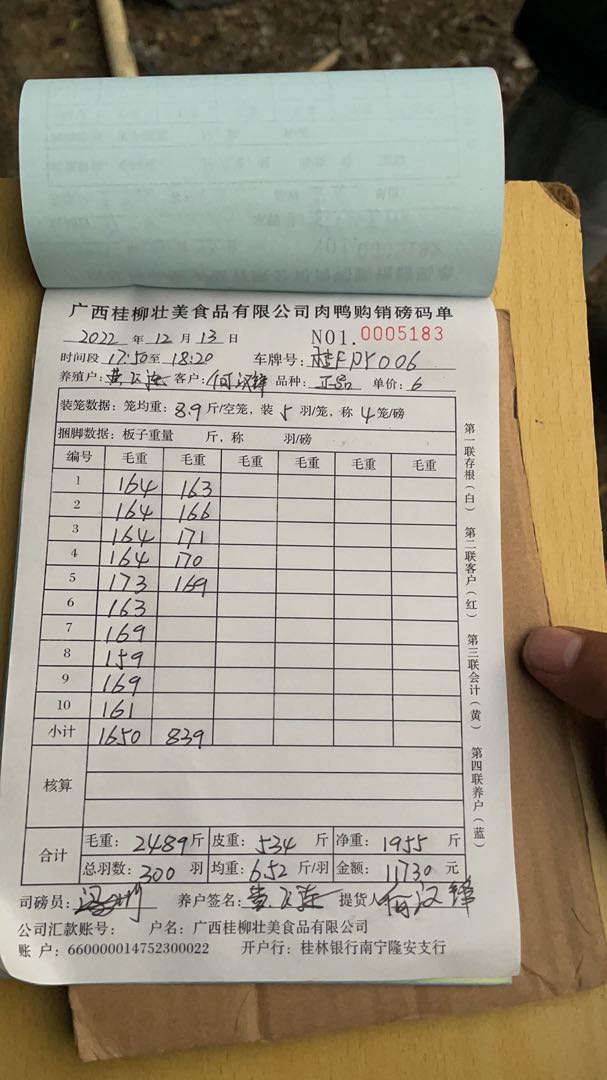 广西桂柳壮美食品有限公司肉鸭购销磅码单
2022 年 12 月 13 日 NO1. 0005183
时间段 17:50 至 18:20 车牌号: 006
养殖户: 黄 客户: 何汉锋 品种: 正品 单价: 6
装笼数据: 笼均重: 8.9 斤/空笼, 装 5 羽/笼, 称 4 笼/磅
捆脚数据: 板子重量 斤, 称 羽/磅
编号 毛重 毛重 毛重 毛重 毛重 毛重
1 164 163
2 164 166
3 164 171
4 164 170
5 173 169
6 163
7 169
8 159
9 169
10 161
小计 1650 839
核算
合计 毛重: 2489 斤 皮重: 534 斤 净重: 1955 斤
总羽数: 300 羽 均重: 6.52 斤/羽 金额: 11730 元
司磅员: 养户签名: 黄 提货人 何汉锋
公司汇款账号: 户名: 广西桂柳壮美食品有限公司
账 户: 660000014752300022 开户行: 桂林银行南宁隆安支行
第一联存根(白) 第二联客户(红) 第三联会计(黄) 第四联养户(蓝)